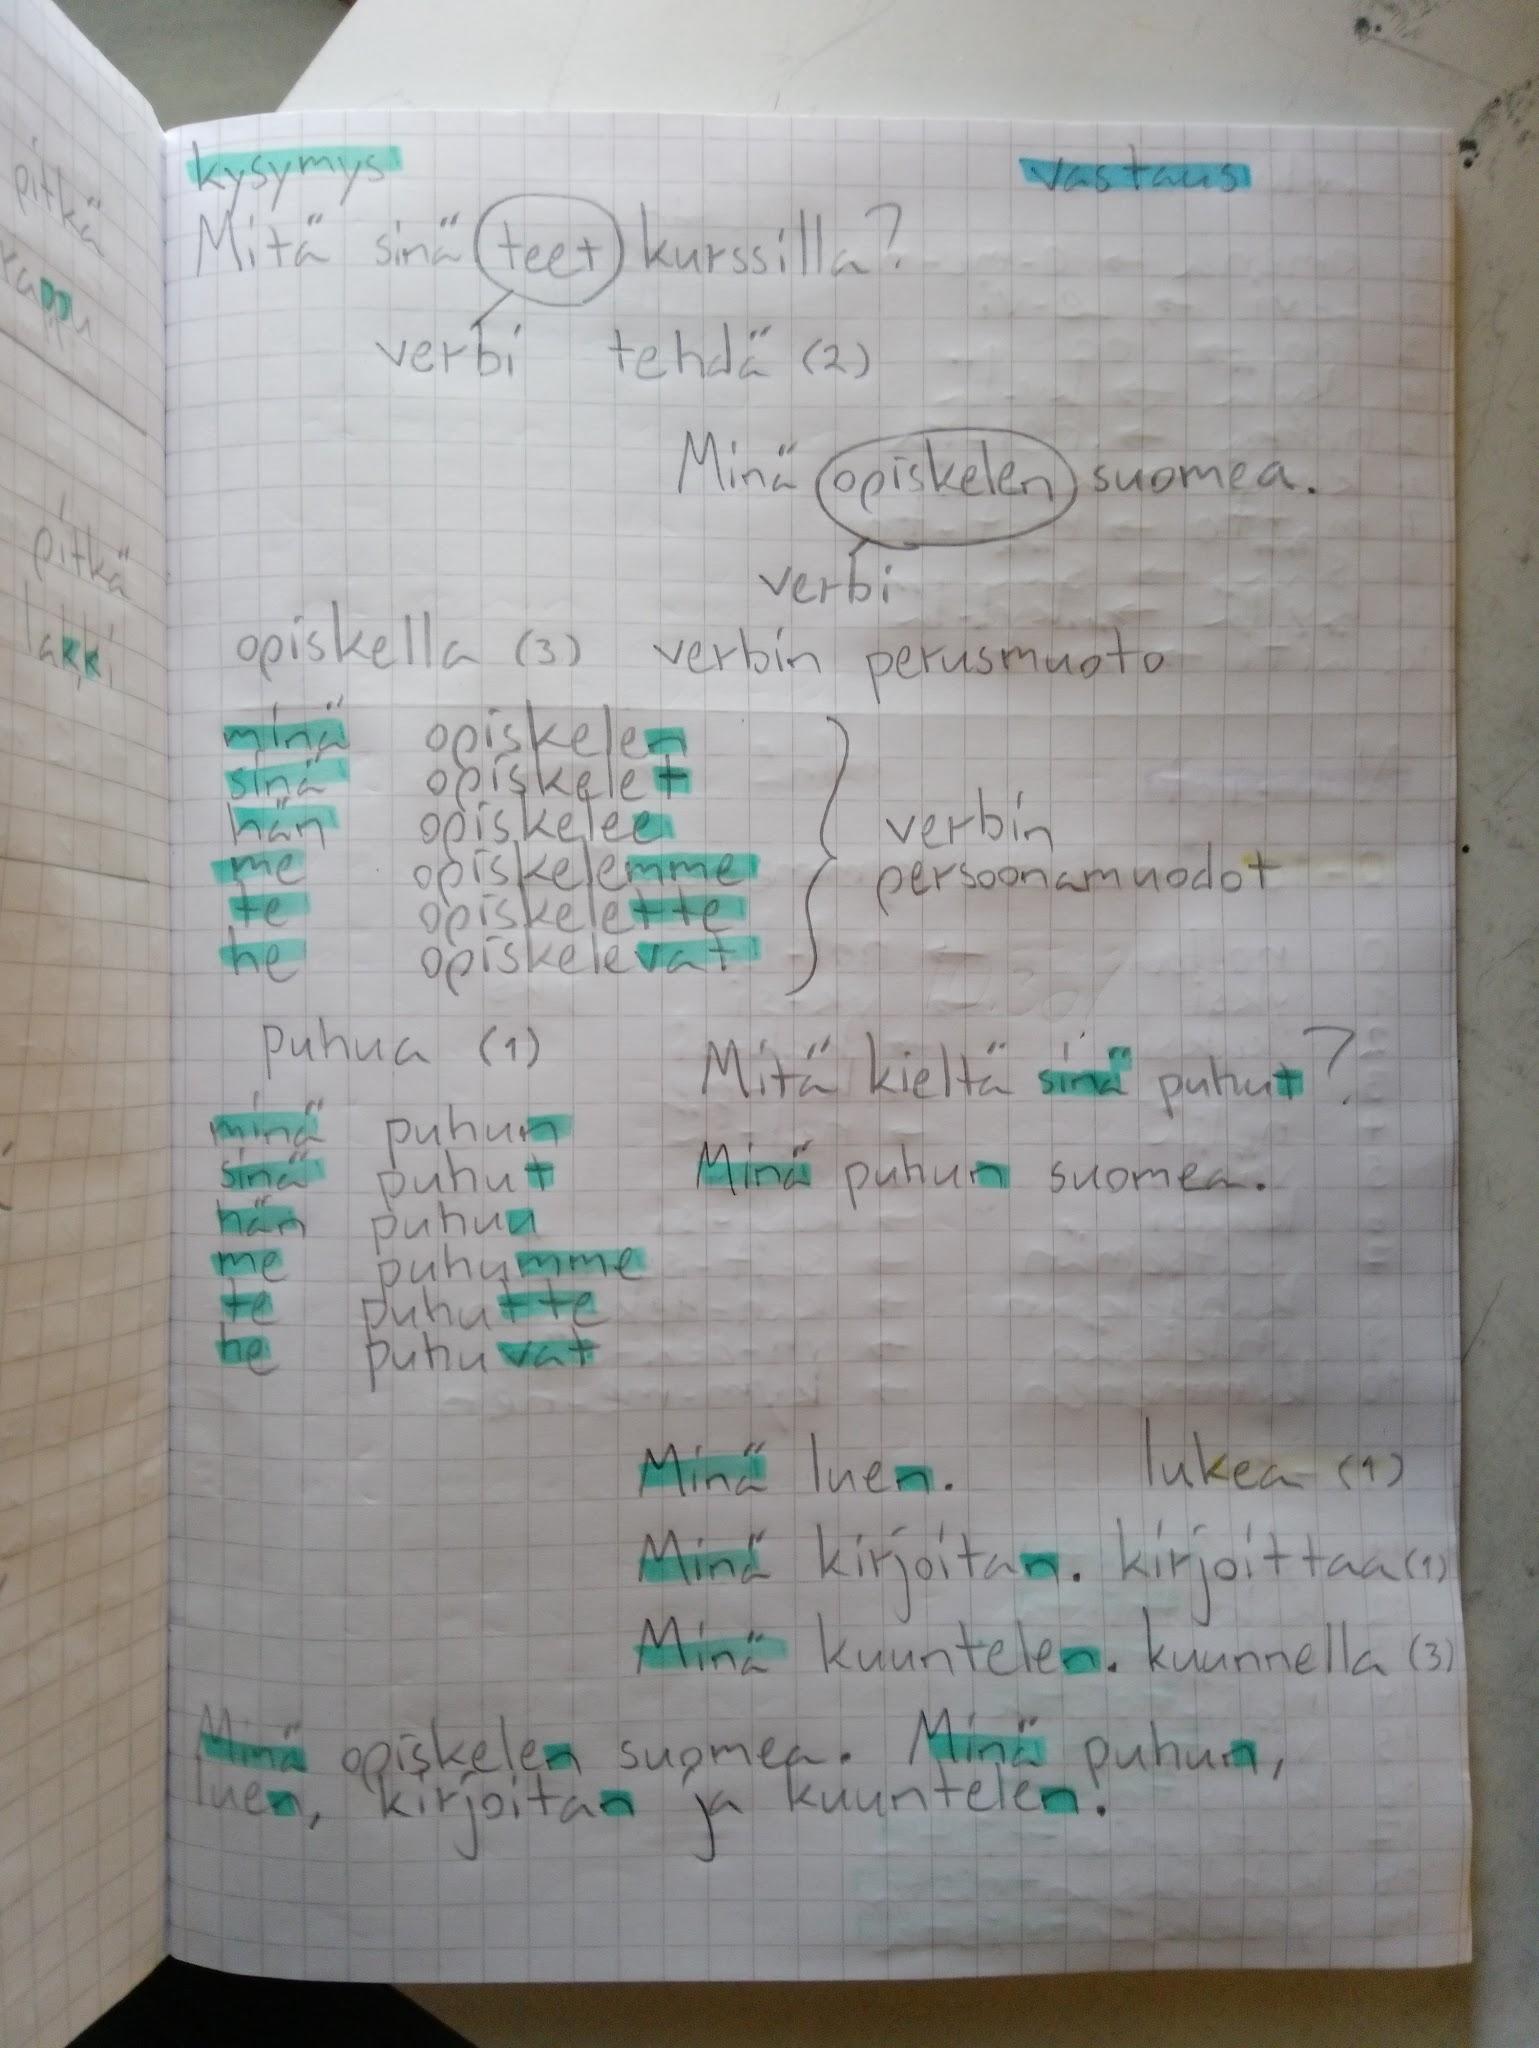 pitkä
kappu
pitkä
lakki
kysymys vastaus
Mitä sinä teet kurssilla?
verbi tehdä (2)
Minä opiskelen suomea.
verbi
opiskella (3) verbin perusmuoto
minä opiskelen
sinä opiskelet
hän opiskelee
me opiskelemme
te opiskelette
he opiskelevat
verbin
persoonamuodot
puhua (1)
minä puhun
sinä puhut
hän puhuu
me puhumme
te puhutte
he puhuvat
Mitä kieltä sinä puhut?
Minä puhun suomea.
Minä luen. lukea (1)
Minä kirjoitan. kirjoittaa (1)
Minä kuuntelen. kuunnella (3)
Minä opiskelen suomea. Minä puhun,
luen, kirjoitan ja kuuntelen.